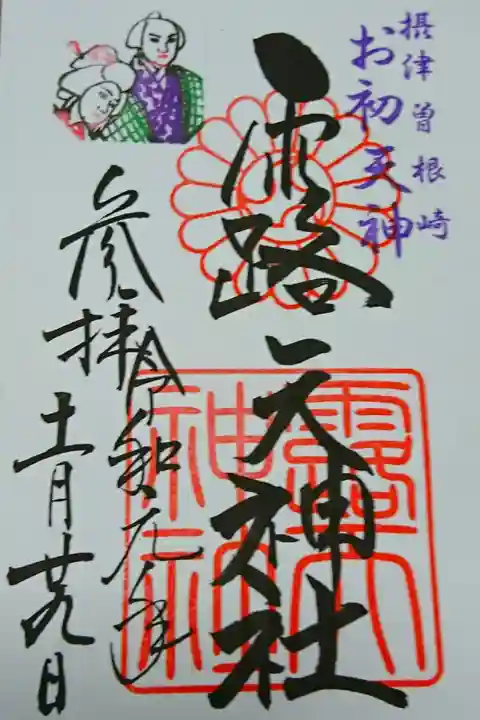 摂津曽根崎
お初天神
露天神社
参拝
令和元年
十一月廿九日
露天
神社